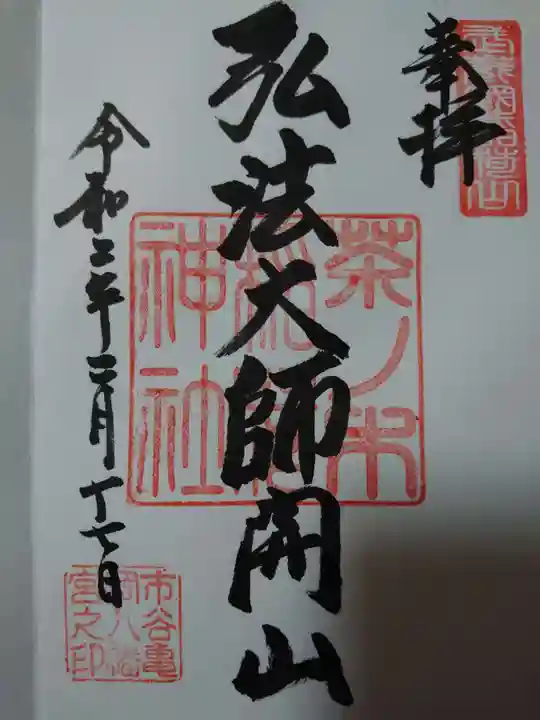 奉拝
弘法大師開山
茶ノ木
稲荷
神社
令和二年二月十七日
市谷亀
岡八幡
宮之印